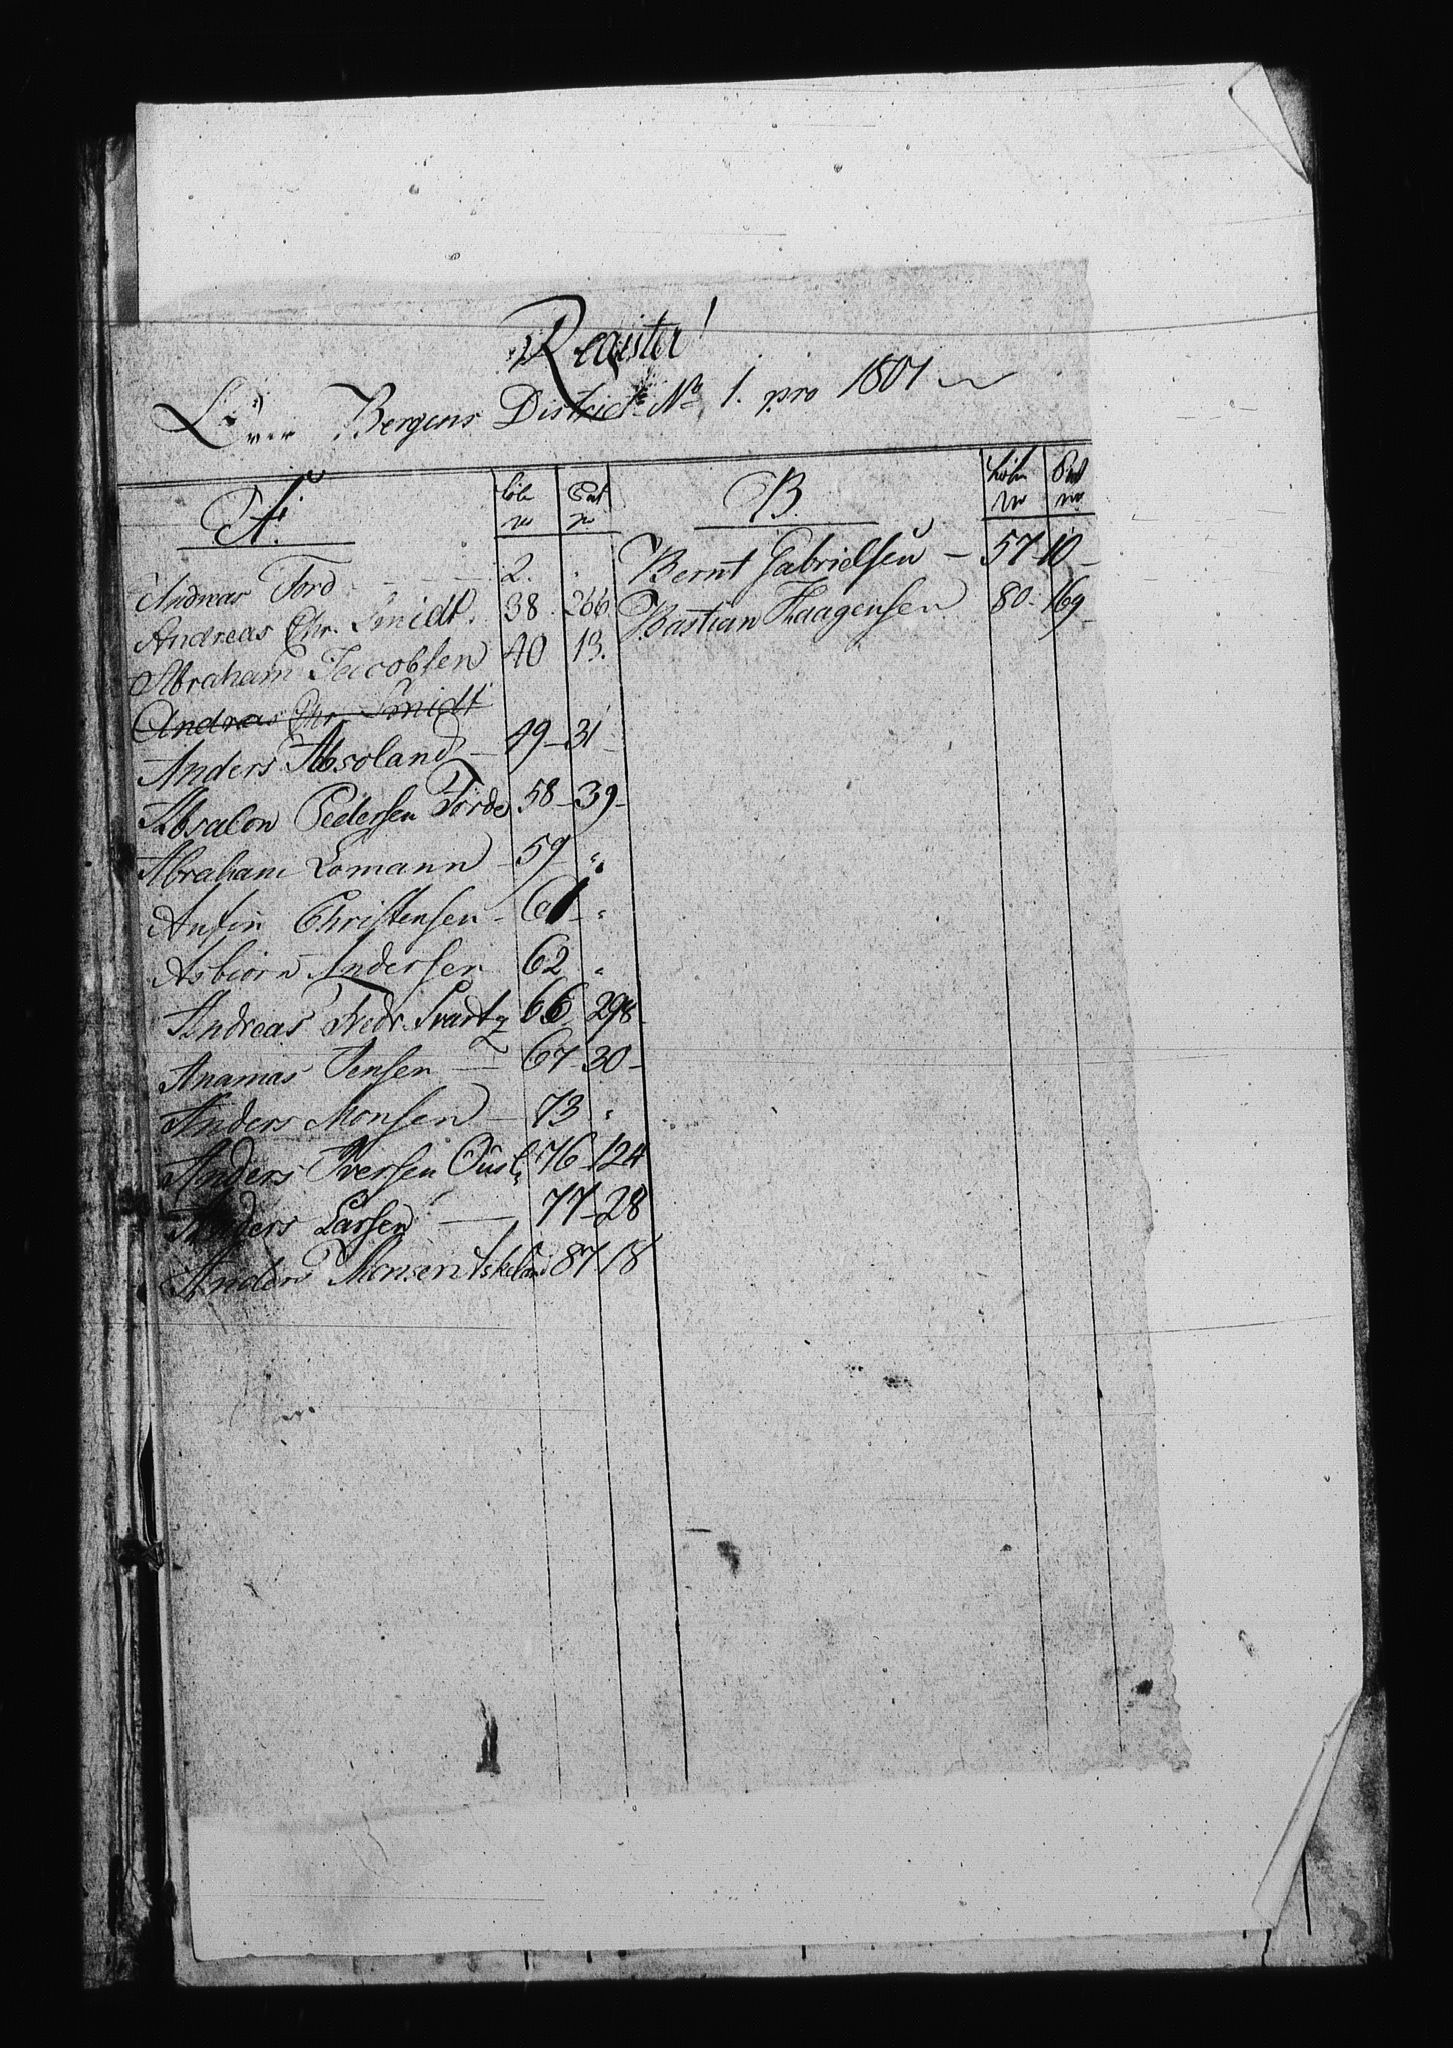 Register
Over Bergens District No 1. pro 1801
A.
Löbe No
Pat No
Andreas Ford 2. "
Andreas Chr. Smidt. 38. 266.
Abraham Jacobsen 40 13.
Andreas Chr. Smidt
Anders Absoland 49 31
Absalon Pedersen Förde 58 39
Abraham Lomann 59 "
Anfin Christensen 61 "
Asbiörn Andersen 62 "
Andreas Fredr. Svartz 66 298
Ananias Jensen 67 30
Anders Monsen 73 "
Anders Iversen 76 124
Anders Larsen 77 28
Anders Monsen Askeland 87 18
B.
Löbe No
Pat No
Bernt Gabrielsen 57 10
Bastian Haagensen 80 169